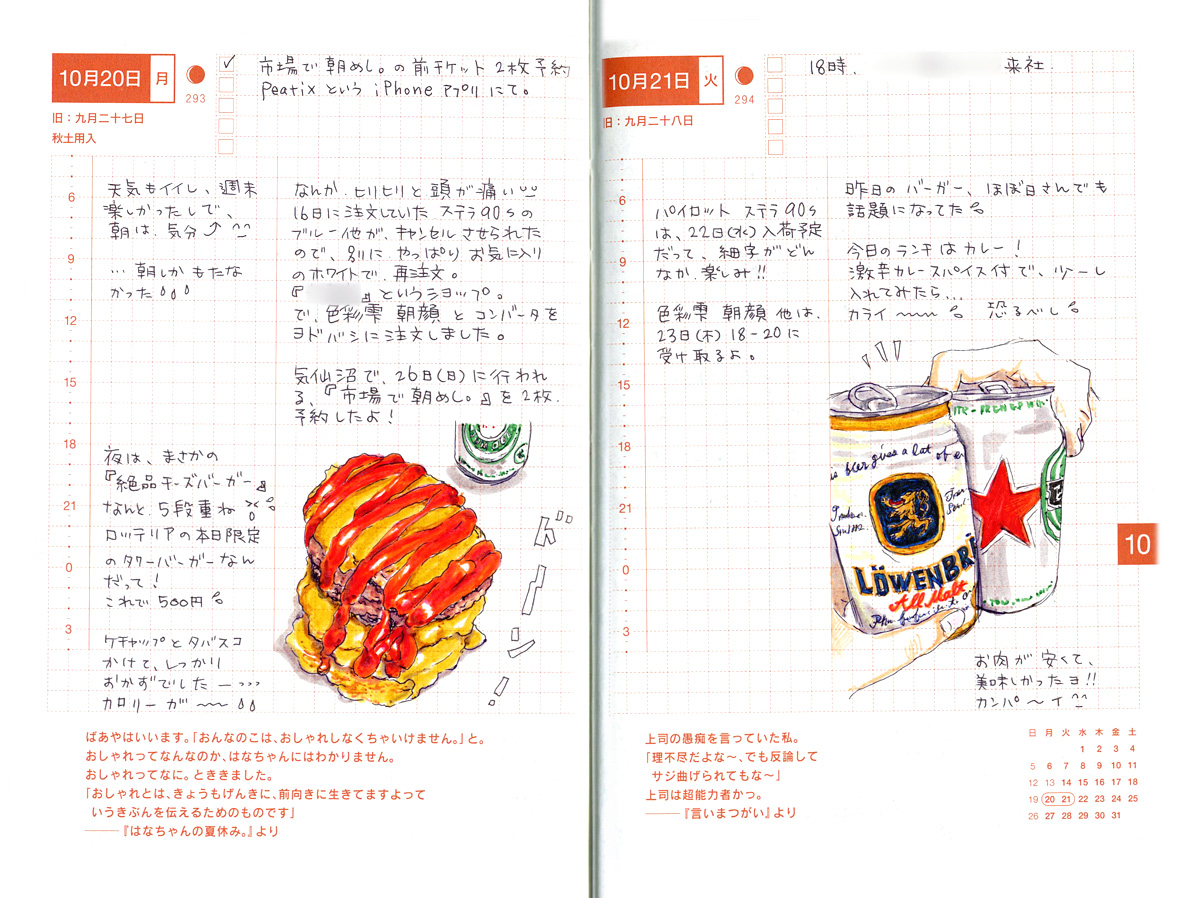 10月20日 月
293
旧：九月二十七日
秋土用入
市場で朝めし。の前チケット2枚予約
Peatix という iPhone アプリ にて。
6
9
12
15
18
21
0
3
天気もイイし、週末
楽しかったしで、
朝は、気分⤴
… 朝しか もたな
かった
夜は、まさかの
『絶品チーズバーガー』
なんと、5段重ね
ロッテリアの本日限定
のタワーバーガーなん
だって！
これで 500円
ケチャップとタバスコ
かけて、しっかり
おかずでしたー
カロリーが〜〜
なんか、ヒリヒリと 頭が 痛い
16日に注文していた ステラ90sの
ブルー他が、キャンセル させられた
ので、別に やっぱり お気に入り
のホワイトで、再注文。
『 』というショップ。
で、色彩雫 朝顔 と コンバータを
ヨドバシに注文しました。
気仙沼で、26日(日)に行われ
る、『市場で朝めし。』を2枚、
予約したよ！
ドーン！
ばあやはいいます。「おんなのこは、おしゃれしなくちゃいけません。」と。
おしゃれってなんなのか、はなちゃんにはわかりません。
おしゃれってなに。とききました。
「おしゃれとは、きょうもげんきに、前向きに生きてますよって
いうきぶんを伝えるためのものです」
———『はなちゃんの夏休み。』より
10月21日 火
294
旧：九月二十八日
18時、 来社.
6
9
12
15
18
21
0
3
パイロット ステラ 90s
は、22日(水)入荷予定
だって、細字がどん
なか、楽しみ!!
色彩雫 朝顔 他は、
23日(木) 18-20に
受け取るよ。
昨日の バーガー、ほぼ日さんでも
話題になってた
今日のランチは カレー！
激辛カレースパイス付で、少〜し
入れてみたら…
カライ 〜〜 恐るべし
beer gives a lot of
LÖWENBRÄ
All Malt
お肉が 安くて、
美味しかったヨ!!
カンパ〜イ
10
上司の愚痴を言っていた私。
「理不尽だよな〜、でも反論して
サジ曲げられてもな〜」
上司は超能力者かつ。
———『言いまつがい』より
日 月 火 水 木 金 土
1 2 3 4
5 6 7 8 9 10 11
12 13 14 15 16 17 18
19 20 21 22 23 24 25
26 27 28 29 30 31